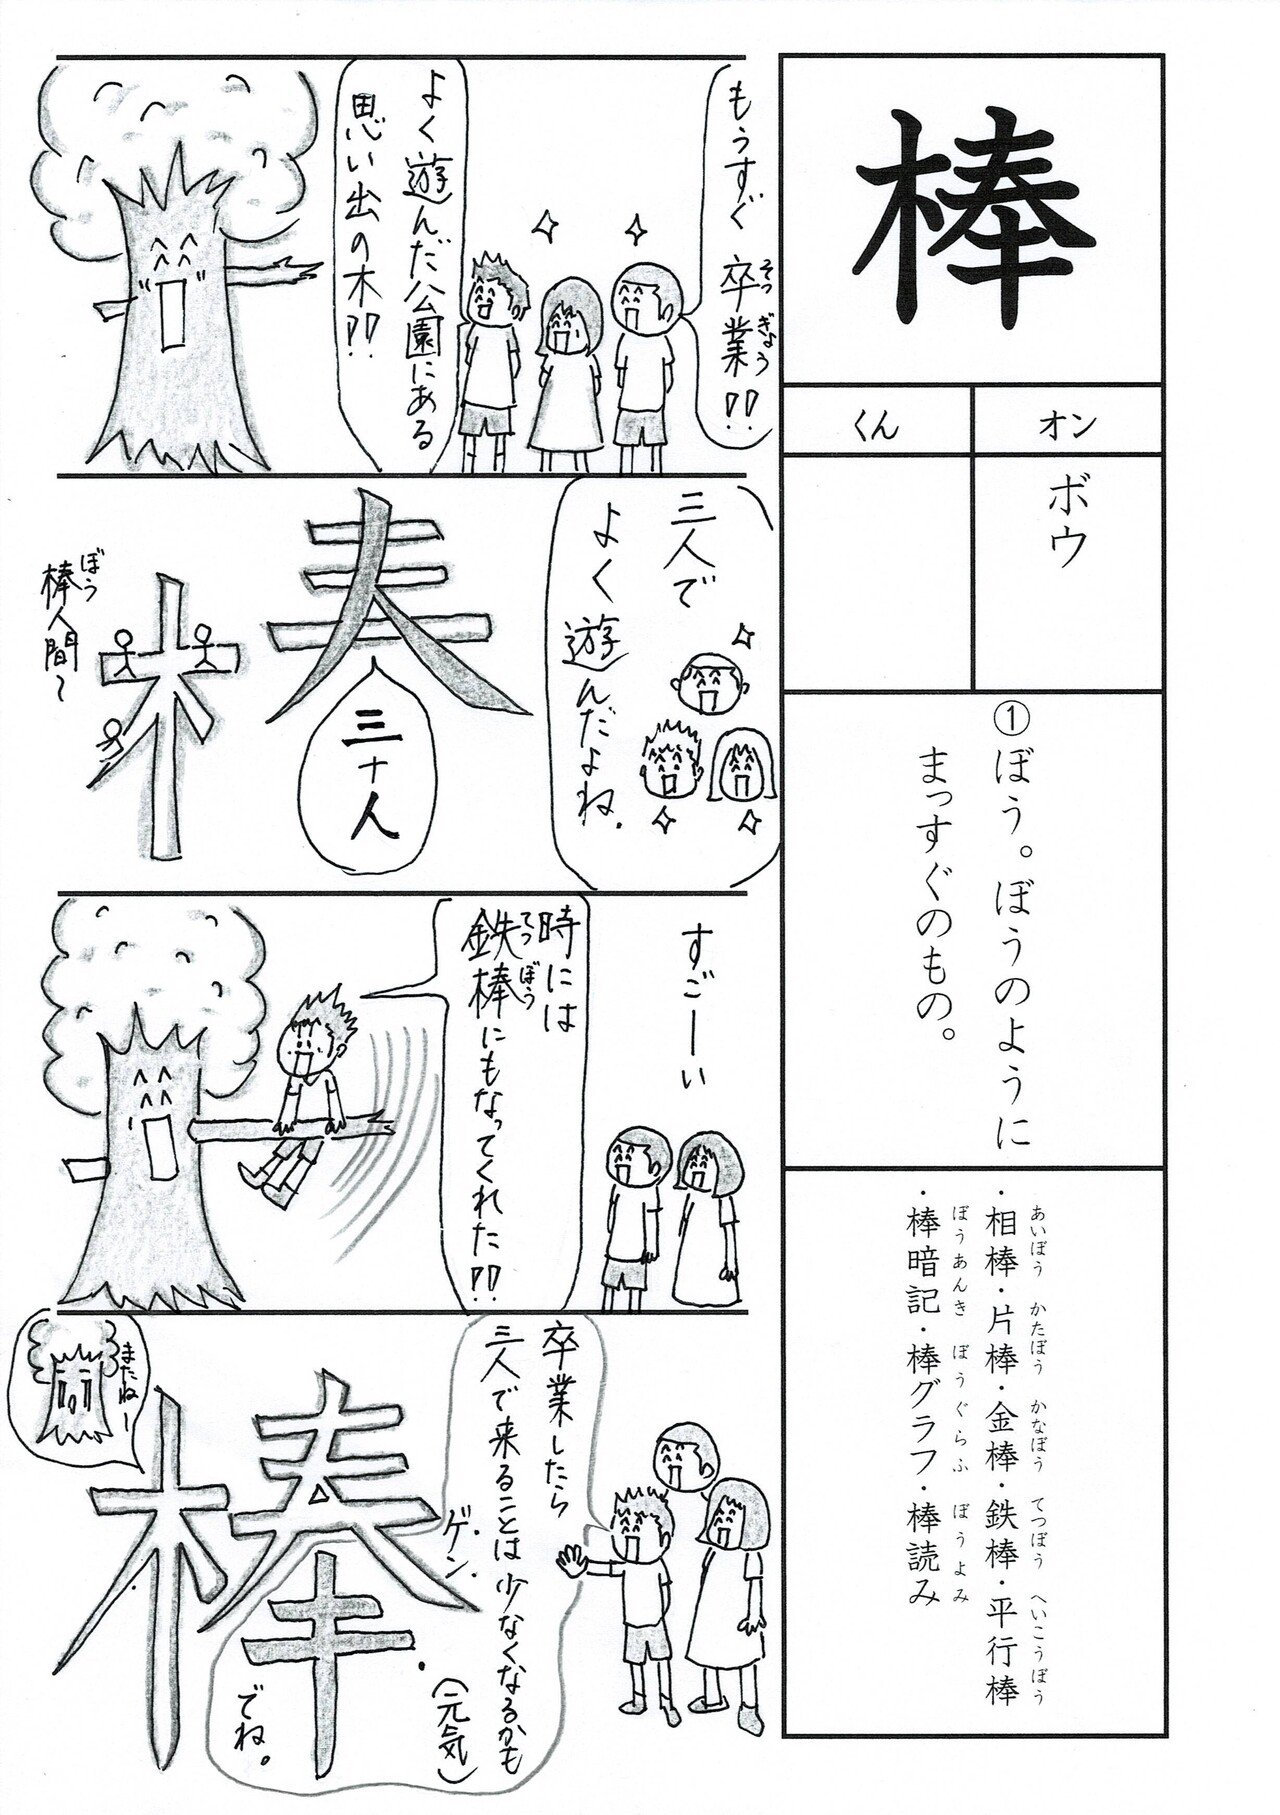 棒
オン
くん
ボウ
①ぼう。ぼうのように
まっすぐのもの。
・相棒・片棒・金棒・鉄棒・平行棒
あいぼう かたぼう かなぼう てつぼう へいこうぼう
・棒暗記・棒グラフ・棒読み
ぼうあんき ぼうぐらふ ぼうよみ
もうすぐ卒業!!
そつぎょう
よく遊んだ公園にある
思い出の木!!
三人で
よく遊んだよね.
三
人
三十人
棒人間〜
ぼう
木
すごーい
時には
鉄棒にもなってくれた!!
てつぼう
卒業したら
三人で来ることは少なくなるかも
ゲン.
キ.
(元気)
でね。
またねー
棒